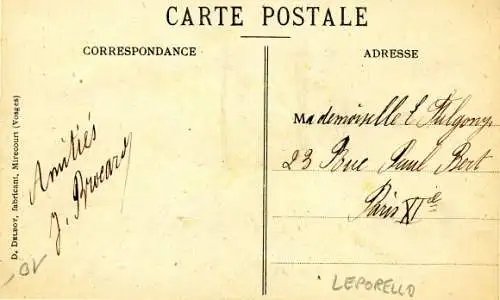 CARTE POSTALE
CORRESPONDANCE
ADRESSE
D. DELBOY, fabricant, Mirecourt (Vosges)
Amitiés
J. Brocard
Mademoiselle E
23 Rue Paul Bert
Paris XIe
LEPORELLO